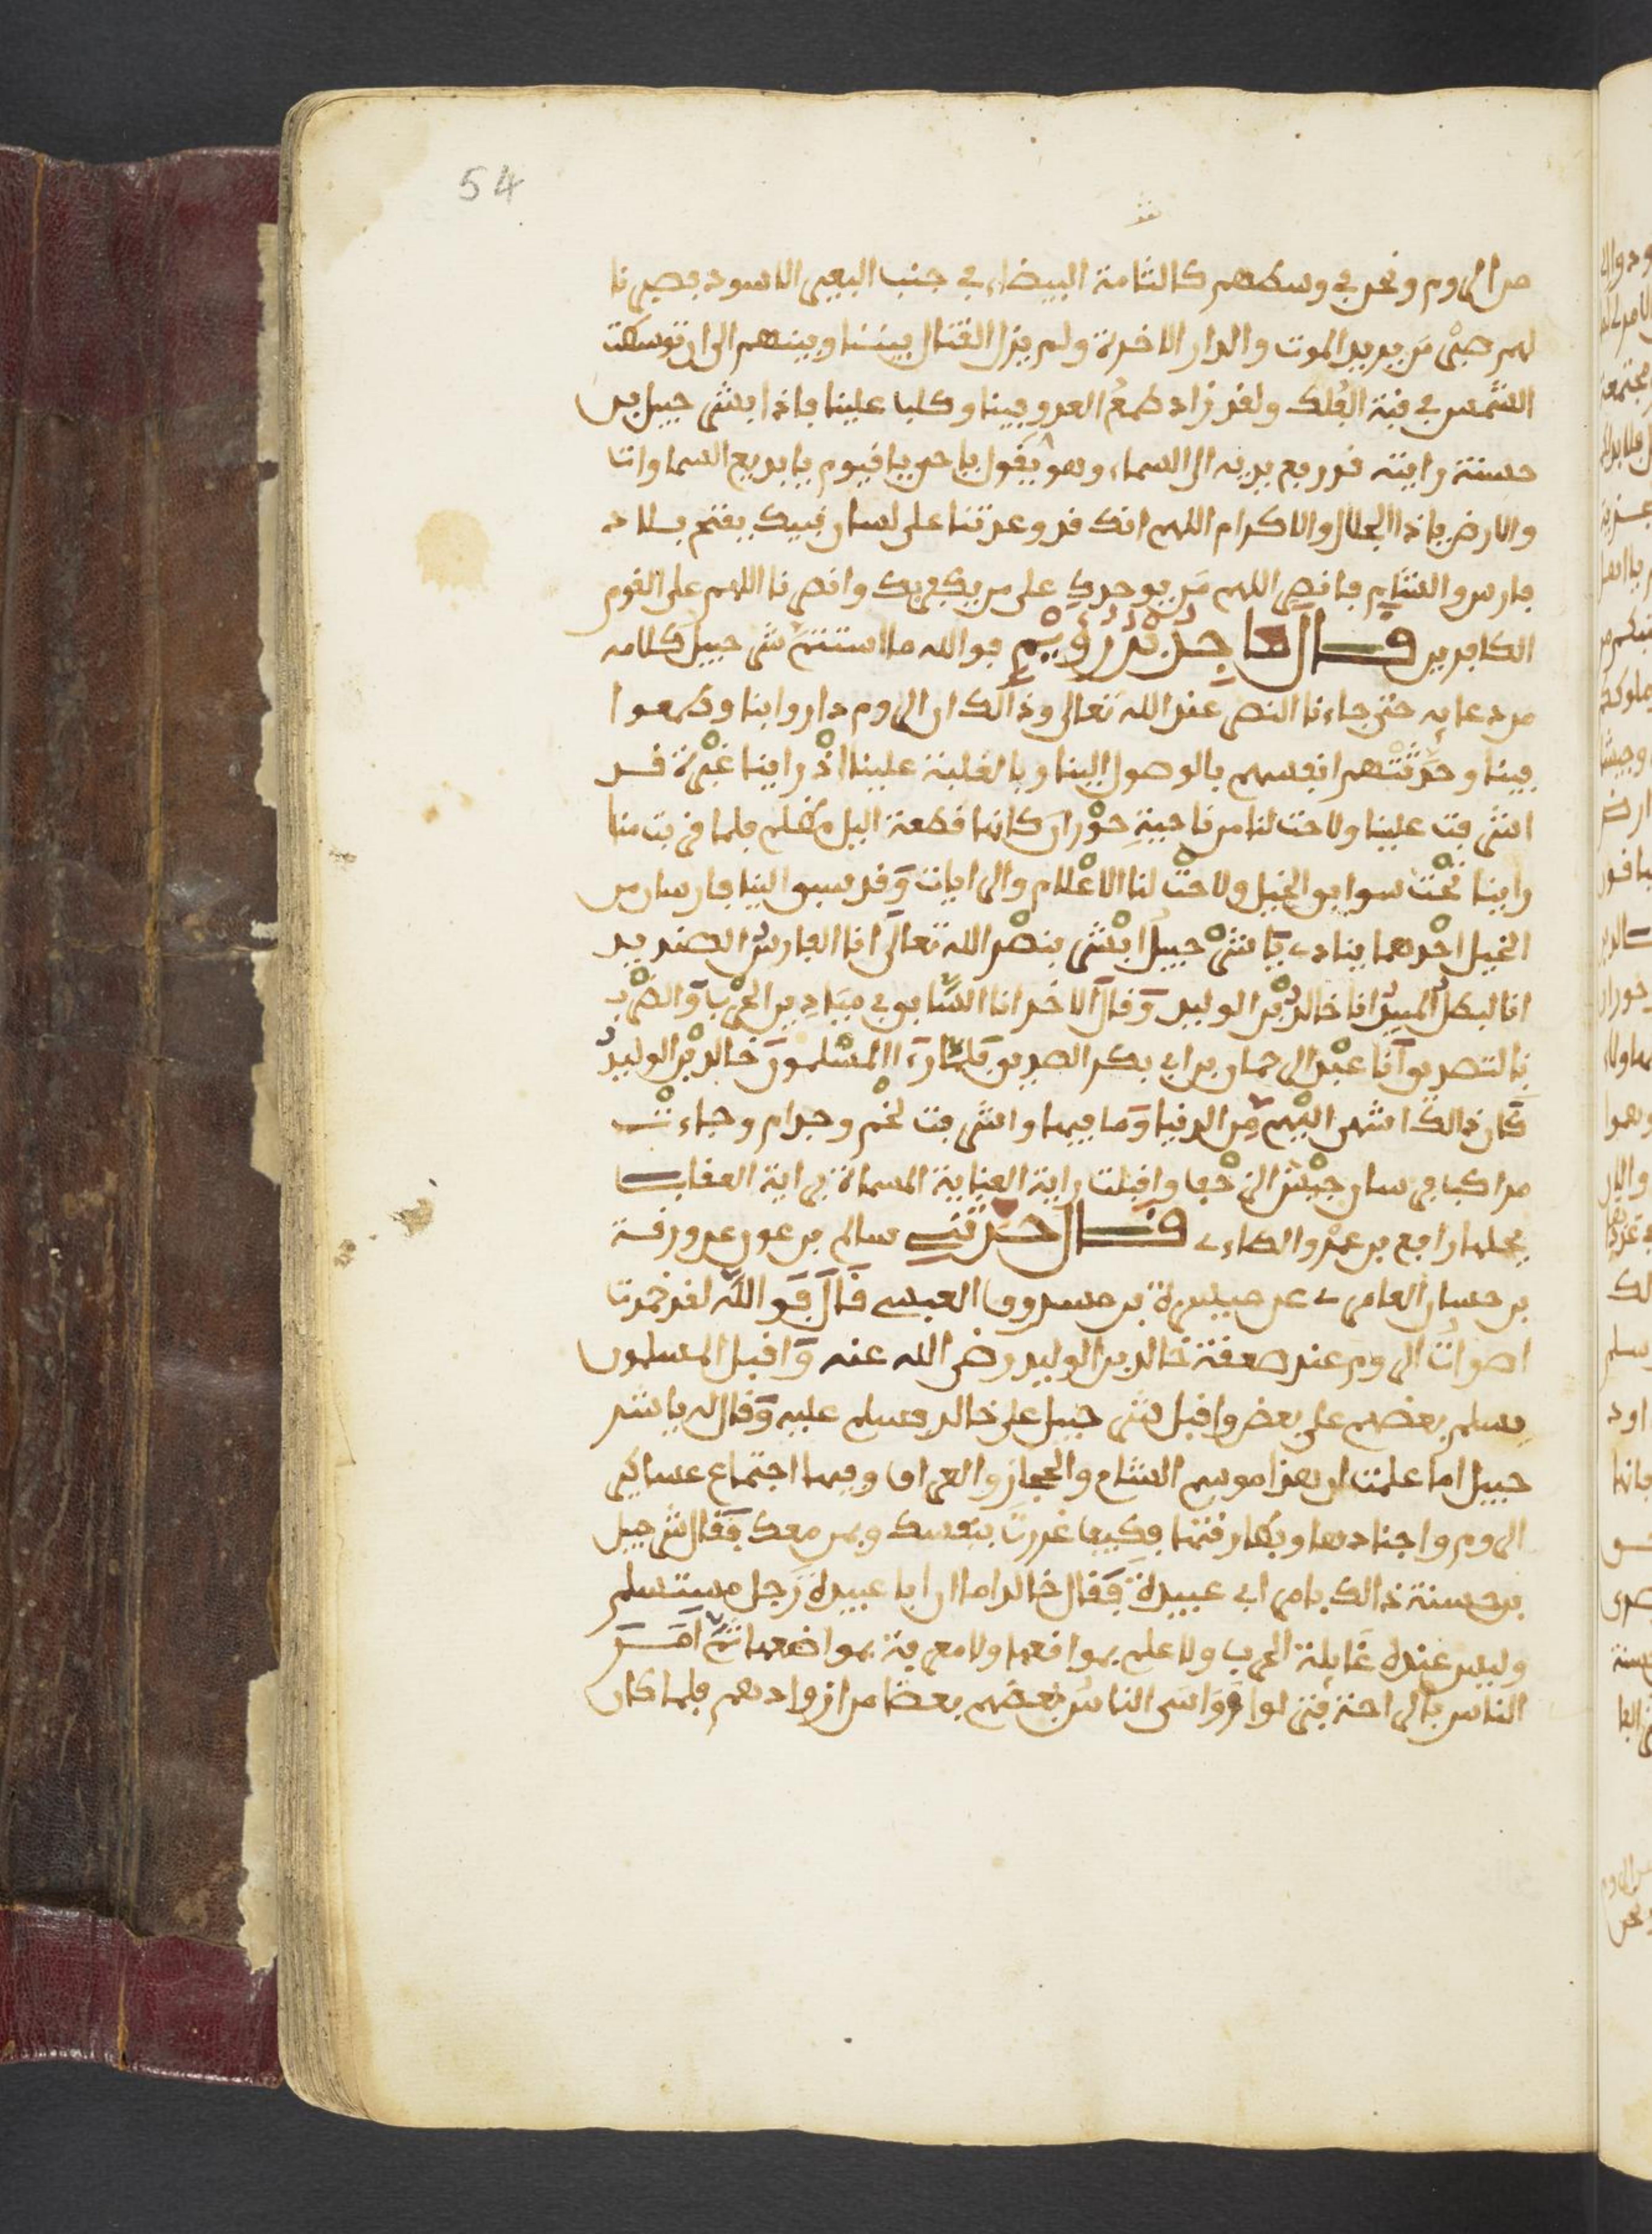 54
من الروم ونحن في وسطهم كالشامة البيضاء في جنب البعير الاسود فصبرنا
لهم صبر من يريد الموت والدار الاخرة ولم يزل القتال بيننا وبينهم الى ان توسطت
الشمس في قبة الفلك ولقد زاد طمع العدو فينا وكلبا علينا فاذا بشرحبيل بن
حسنة رايته قد رفع يديه الى السماء وهو يقول يا حي يا قيوم يا بديع السماوات
والارض يا ذا الجلال والاكرام اللهم انك قد وعدتنا على لسان نبيك بفتح بلاد
فارس والشام فانصر اللهم من يوحدك على من يكفر بك وانصرنا اللهم على القوم
الكافرين قال ماجد بن رويم فوالله ما استتم شرحبيل كلامه
من دعايه حتى جاءنا النصر عند الله تعالى وذالك ان الروم داروا بنا وطمعوا
فينا وحدثتهم انفسهم بالوصول الينا وبالغلبة علينا اذ راينا غبرة قد
اشرفت علينا ولاحت لنا من ناحية حوران كانها قطعة اليل مظلم فلما قربت منا
راينا تحت سوابق الخيل ولاحت لنا الاعلام والرايات وقد سبق الينا فارسان من
الخيل احدهما ينادي يا شرحبيل ابشر بنصر الله تعالى انا الفارس الصنديد
انا البطل المبيد انا خالد بن الوليد وقال الاخر انا السابق في ميادين الحرب والضرب
بالتصديق انا عبد الرحمان بن ابي بكر الصديق فلما رءا المسلمون خالد بن الوليد
كان ذالك اشهى اليهم من الدنيا وما فيها واشرفت لخم وجذام وجاءت
مراكب فرسان جيش الزحف واقبلت راية العناية المسماة براية العقاب
يحملها رافع بن عمرو الطاءي قال حدثني سالم بن عون عن ورقة
بن حسان العامري عن ميسرة بن مسروق العبسي قال فوالله لقد خمدت
اصوات الروم عند صعقة خالد بن الوليد رضي الله عنه واقبل المسلمون
يسلم بعضهم على بعض واقبل شرحبيل على خالد فسلم عليه وقال له يا شر
حبيل اما علمت ان هذا موسم الشام والحجاز والعراق وفيها اجتماع عساكر
الروم واجنادها وبطارقتها فكيف غررت بنفسك وبمن معك فقال شرحبيل
بن حسنة ذالك بامر ابي عبيدة فقال خالد اما ان ابا عبيدة رجل مستسلم
وليس عنده غايلة الحرب ولا علم بمواقعها ولا معرفة بمواضعها ثم امر
الناس بالراحة فنزلوا وواسى الناس بعضهم بعضا من ازوادهم فلما كان